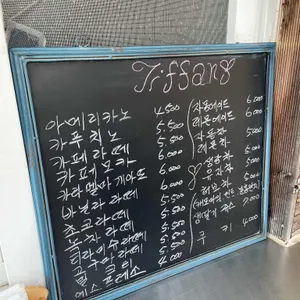 Tiffany
아메리카노 4.500
카푸치노 5.500
카페라떼 5.500
카페모카 6.000
카라멜마끼아또 6.000
바닐라라떼 5.500
초코라떼 5.500
녹차라떼 5.500
티라미수라떼 5.500
고구마라떼 5.500
밀크티 5.500
에스프레소 4.000
자몽에이드 6.000
레몬에이드 6.000
자몽차
레몬차 6.000
생강차
유자차
허브차 5.000
생딸기쥬스 7.000
쿠키 4.000